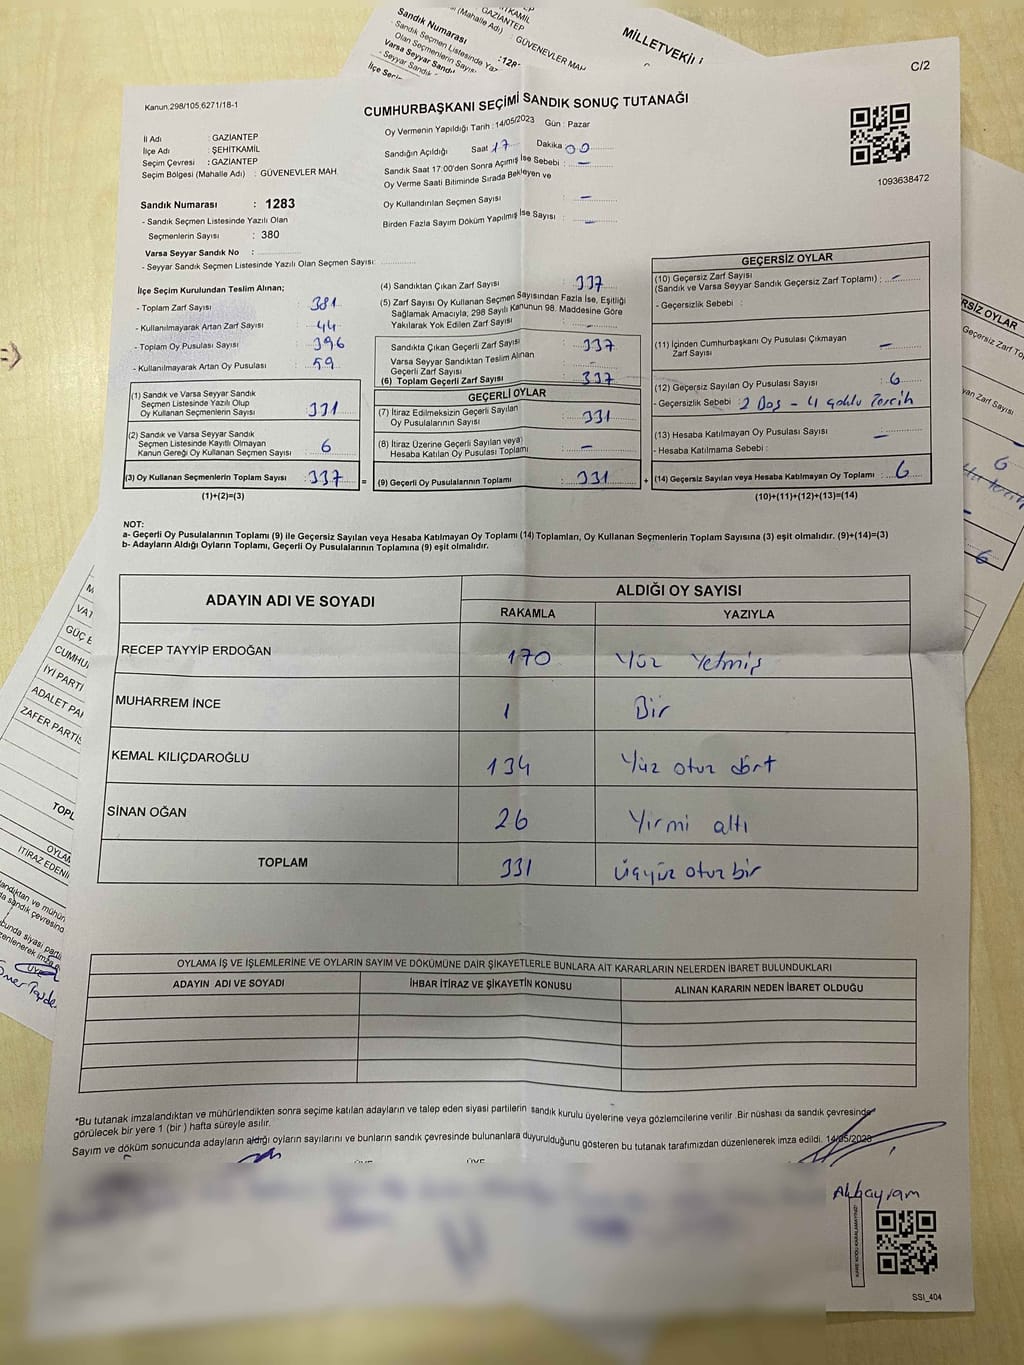 İTKAMİL
: GAZİANTEP
(Mahalle Adı) : GÜVENEVLER MAH
Sandık Numarası
- Sandık Seçmen Listesinde Yaz
Olan Seçmenlerin Sayıs
Varsa Seyyar Sand
- Seyyar Sandık
İlçe Seçi
MİLLETVEKİLİ
C/2
Kanun,298/105 6271/18-1
CUMHURBAŞKANI SEÇİMİ SANDIK SONUÇ TUTANAĞI
1093638472
İl Adı : GAZİANTEP
İlçe Adı : ŞEHİTKAMİL
Seçim Çevresi : GAZİANTEP
Seçim Bölgesi (Mahalle Adı) : GÜVENEVLER MAH
Oy Vermenin Yapıldığı Tarih : 14/05/2023 Gün : Pazar
Sandığın Açıldığı Saat 17 Dakika 00
Sandık Saat 17:00'den Sonra Açımış İse Sebebi : -
Oy Verme Saati Bitiminde Sırada Bekleyen ve
Oy Kullandırılan Seçmen Sayısı : -
Birden Fazla Sayım Döküm Yapılmış İse Sayısı : -
Sandık Numarası : 1283
- Sandık Seçmen Listesinde Yazılı Olan
Seçmenlerin Sayısı : 380
Varsa Seyyar Sandık No :
- Seyyar Sandık Seçmen Listesinde Yazılı Olan Seçmen Sayısı:
İlçe Seçim Kurulundan Teslim Alınan;
- Toplam Zarf Sayısı : 381
- Kullanılmayarak Artan Zarf Sayısı : 44
- Toplam Oy Pusulası Sayısı : 396
- Kullanılmayarak Artan Oy Pusulası : 59
(1) Sandık ve Varsa Seyyar Sandık
Seçmen Listesinde Yazılı Olup
Oy Kullanan Seçmenlerin Sayısı : 331
(2) Sandık ve Varsa Seyyar Sandık
Seçmen Listesinde Kayıtlı Olmayan
Kanun Gereği Oy Kullanan Seçmen Sayısı : 6
(3) Oy Kullanan Seçmenlerin Toplam Sayısı : 337 =
(1)+(2)=(3)
(4) Sandıktan Çıkan Zarf Sayısı : 337
(5) Zarf Sayısı Oy Kullanan Seçmen Sayısından Fazla İse, Eşitliği
Sağlamak Amacıyla, 298 Sayılı Kanunun 98. Maddesine Göre
Yakılarak Yok Edilen Zarf Sayısı : -
Sandıkta Çıkan Geçerli Zarf Sayısı : 337
Varsa Seyyar Sandıktan Teslim Alınan
Geçerli Zarf Sayısı : -
(6) Toplam Geçerli Zarf Sayısı : 337
GEÇERLİ OYLAR
(7) İtiraz Edilmeksizin Geçerli Sayılan
Oy Pusulalarının Sayısı : 331
(8) İtiraz Üzerine Geçerli Sayılan veya
Hesaba Katılan Oy Pusulası Toplamı : -
(9) Geçerli Oy Pusulalarının Toplamı : 331 +
GEÇERSİZ OYLAR
(10) Geçersiz Zarf Sayısı
(Sandık ve Varsa Seyyar Sandık Geçersiz Zarf Toplamı) : -
- Geçersizlik Sebebi :
(11) İçinden Cumhurbaşkanı Oy Pusulası Çıkmayan
Zarf Sayısı : -
(12) Geçersiz Sayılan Oy Pusulası Sayısı : 6
- Geçersizlik Sebebi : 2 Boş - 4 çoklu Tercih
(13) Hesaba Katılmayan Oy Pusulası Sayısı : -
- Hesaba Katılmama Sebebi :
(14) Geçersiz Sayılan veya Hesaba Katılmayan Oy Toplamı : 6
(10)+(11)+(12)+(13)=(14)
NOT:
a- Geçerli Oy Pusulalarının Toplamı (9) ile Geçersiz Sayılan veya Hesaba Katılmayan Oy Toplamı (14) Toplamları, Oy Kullanan Seçmenlerin Toplam Sayısına (3) eşit olmalıdır. (9)+(14)=(3)
b- Adayların Aldığı Oyların Toplamı, Geçerli Oy Pusulalarının Toplamına (9) eşit olmalıdır.
ADAYIN ADI VE SOYADI ALDIĞI OY SAYISI
RAKAMLA YAZIYLA
RECEP TAYYİP ERDOĞAN 170 Yüz Yetmiş
MUHARREM İNCE 1 Bir
KEMAL KILIÇDAROĞLU 134 Yüz otuz dört
SİNAN OĞAN 26 Yirmi altı
TOPLAM 331 üçyüz otuz bir
OYLAMA İŞ VE İŞLEMLERİNE VE OYLARIN SAYIM VE DÖKÜMÜNE DAİR ŞİKAYETLERLE BUNLARA AİT KARARLARIN NELERDEN İBARET BULUNDUKLARI
ADAYIN ADI VE SOYADI İHBAR İTİRAZ VE ŞİKAYETİN KONUSU ALINAN KARARIN NEDEN İBARET OLDUĞU
*Bu tutanak imzalandıktan ve mühürlendikten sonra seçime katılan adayların ve talep eden siyasi partilerin sandık kurulu üyelerine veya gözlemcilerine verilir .Bir nüshası da sandık çevresinde
görülecek bir yere 1 (bir ) hafta süreyle asılır.
Sayım ve döküm sonucunda adayların aldığı oyların sayılarını ve bunların sandık çevresinde bulunanlara duyurulduğunu gösteren bu tutanak tarafımızdan düzenlenerek imza edildi. 14/05/2023
ÜYE ÜYE
Akbayram
SSI_404
RSİZ OYLAR
Geçersiz Zarf To
an Zarf Sayısı
6
6
VAT
GÜÇ B
CUMHU
İYİ PARTİ
ADALET PA
ZAFER PARTİS
TOPL
OYLAM
İTİRAZ EDENİ